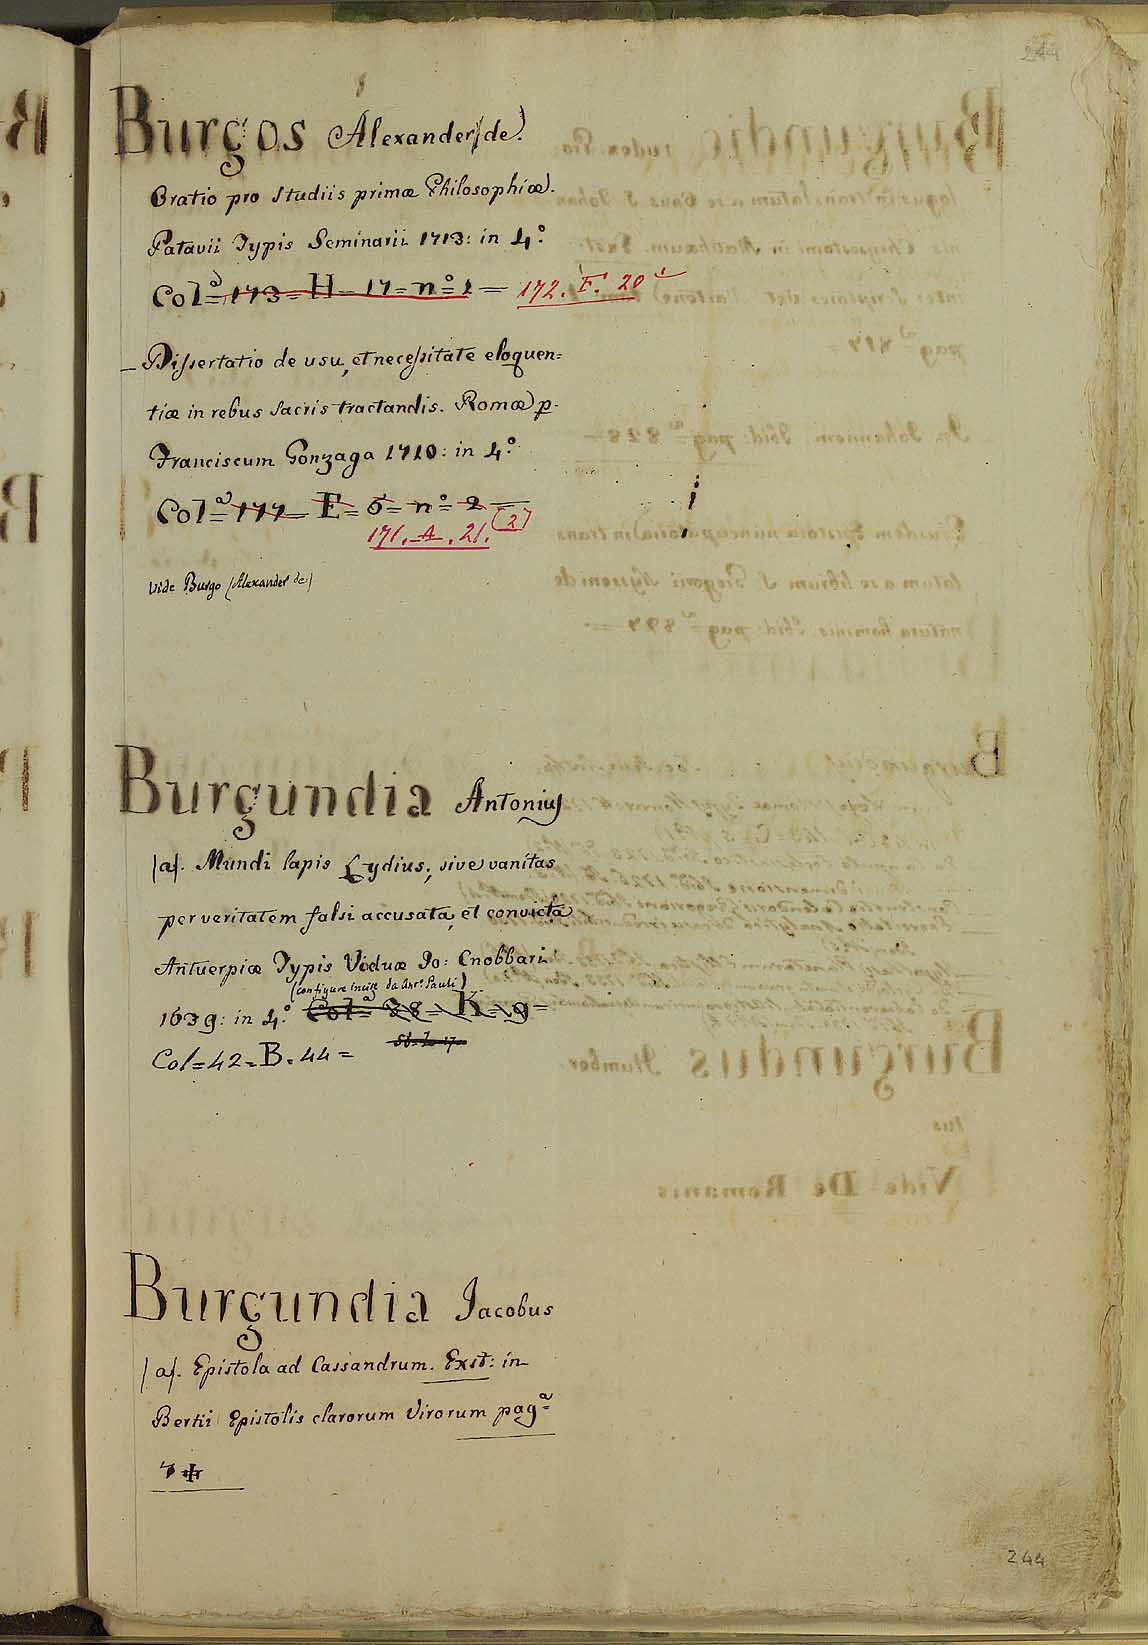 244
Burgos Alexander (de)
Oratio pro studiis primæ Philosophiæ.
Patavii Typis Seminarii 1713: in 4.º
Col.ª = 173 = H = 17 = n.º 1 = 172. F. 20
_ Dissertatio de usu, et necessitate eloquen=
tiæ in rebus sacris tractandis. Romæ p.
Franciscum Gonzaga 1710: in 4.º
Col.ª = 177 = E = 6 = n.º 2 =
171. A. 21. (2)
vide Burgo (Alexander de)
Burgundia Antonius
(a). Mundi lapis Lydius, sive vanitas
per veritatem falsi accusata, et convicta
Antuerpiæ Typis Viduæ Jo: Cnobbari
(con figure incise da Ant.º Pauli)
1639: in 4.º Col.ª = 38 = K = 9 =
Col = 42 = B. 44 =
Burgundia Jacobus
(a). Epistola ad Cassandrum. Exst: in
Bertii Epistolis clarorum Virorum pag.ª
244